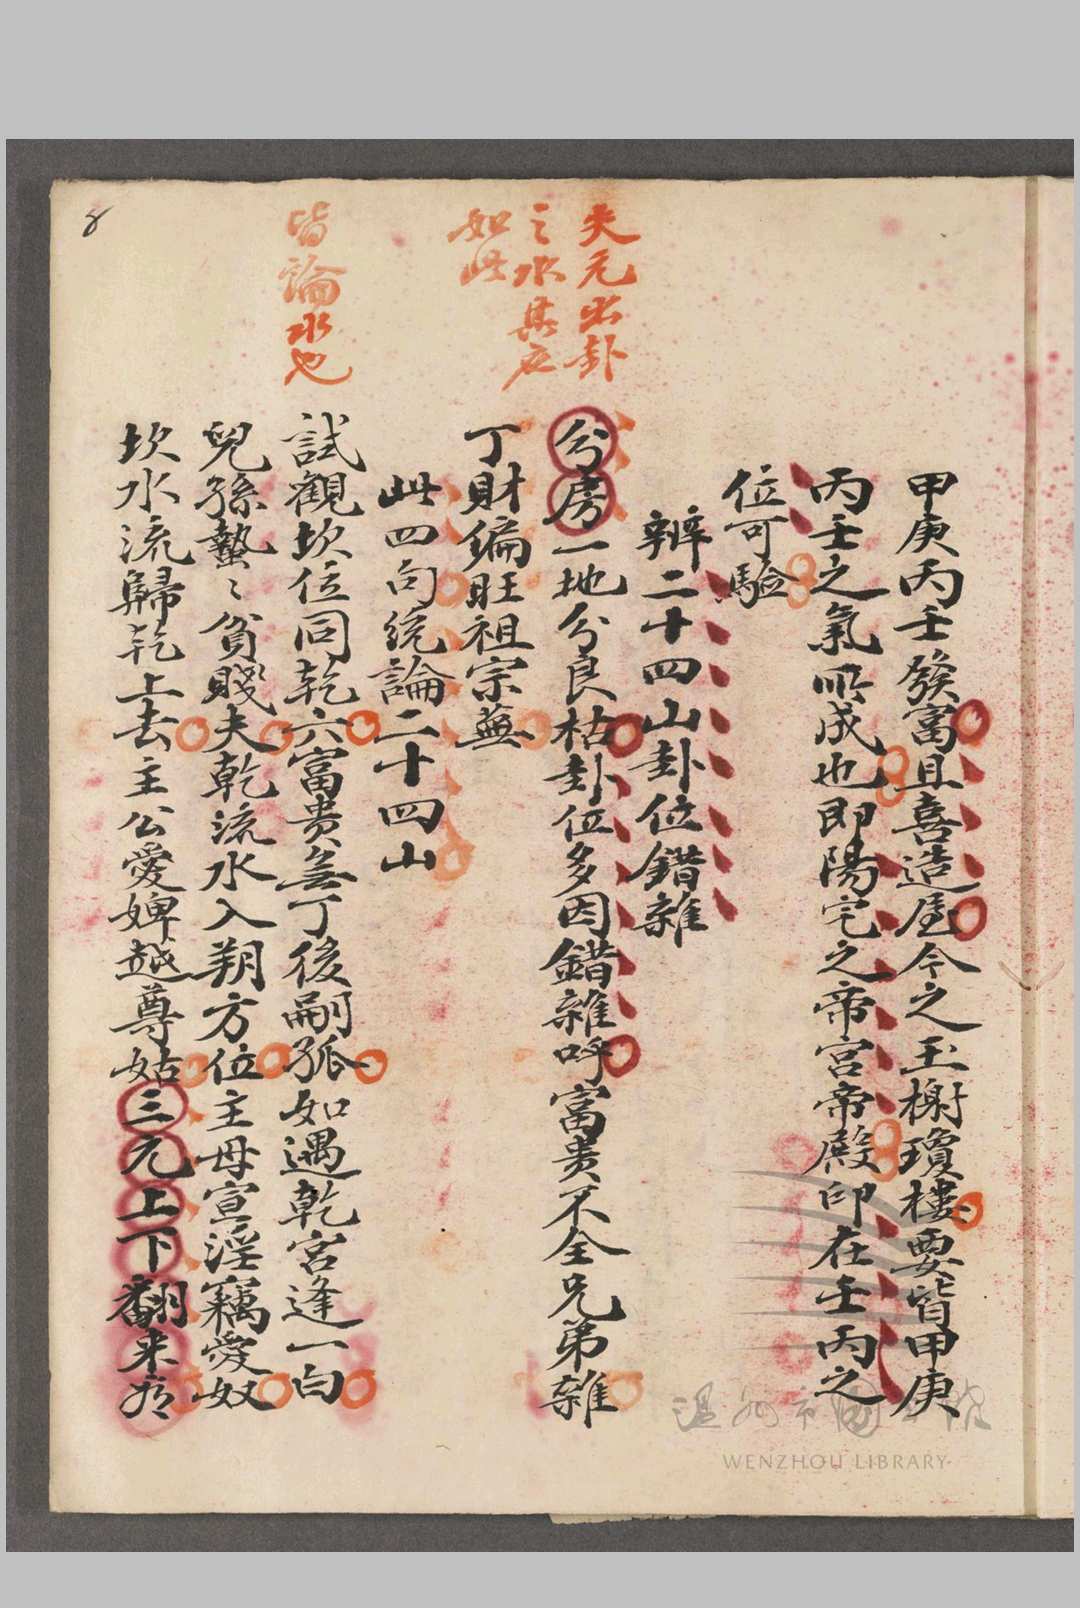 甲庚丙壬發富且喜造屋今之玉榭瓊樓要皆甲庚
丙壬之氣所成也即陽宅之帝宮帝殿印在壬丙之
位可驗
辨二十四山卦位錯雜
分房一地分良枯卦位多因錯雜呼富貴不全兄弟雜
丁財偏旺祖宗蕪
此四句統論二十四山
試觀坎位同乾六富貴無丁後嗣孤如遇乾宮逢一白
兒孫蟄〻貧賤夫乾流水入朔方位主母宣淫竊愛奴
坎水流歸乾上去主公愛婢越尊姑三元上下翻来
失元出卦
之水其应
如此
皆論水也
8
溫州市圖書館
WENZHOU LIBRARY